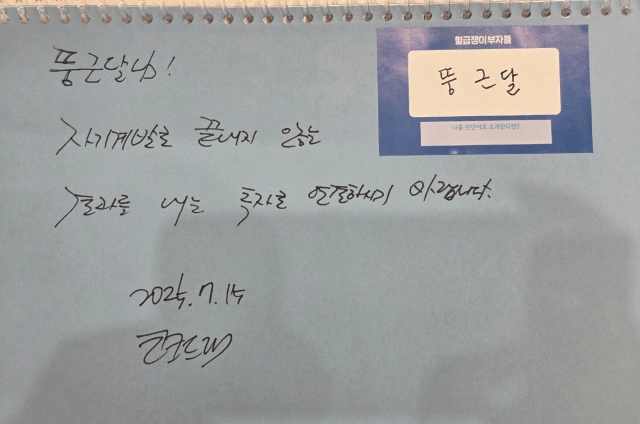 월급쟁이부자들
뚱 근 달
나를 한단어로 소개한다면?
뚱근달님!
자기계발로 끝내지 않는
결과를 내는 투자로 연결하시기 바랍니다.
2025.7.15